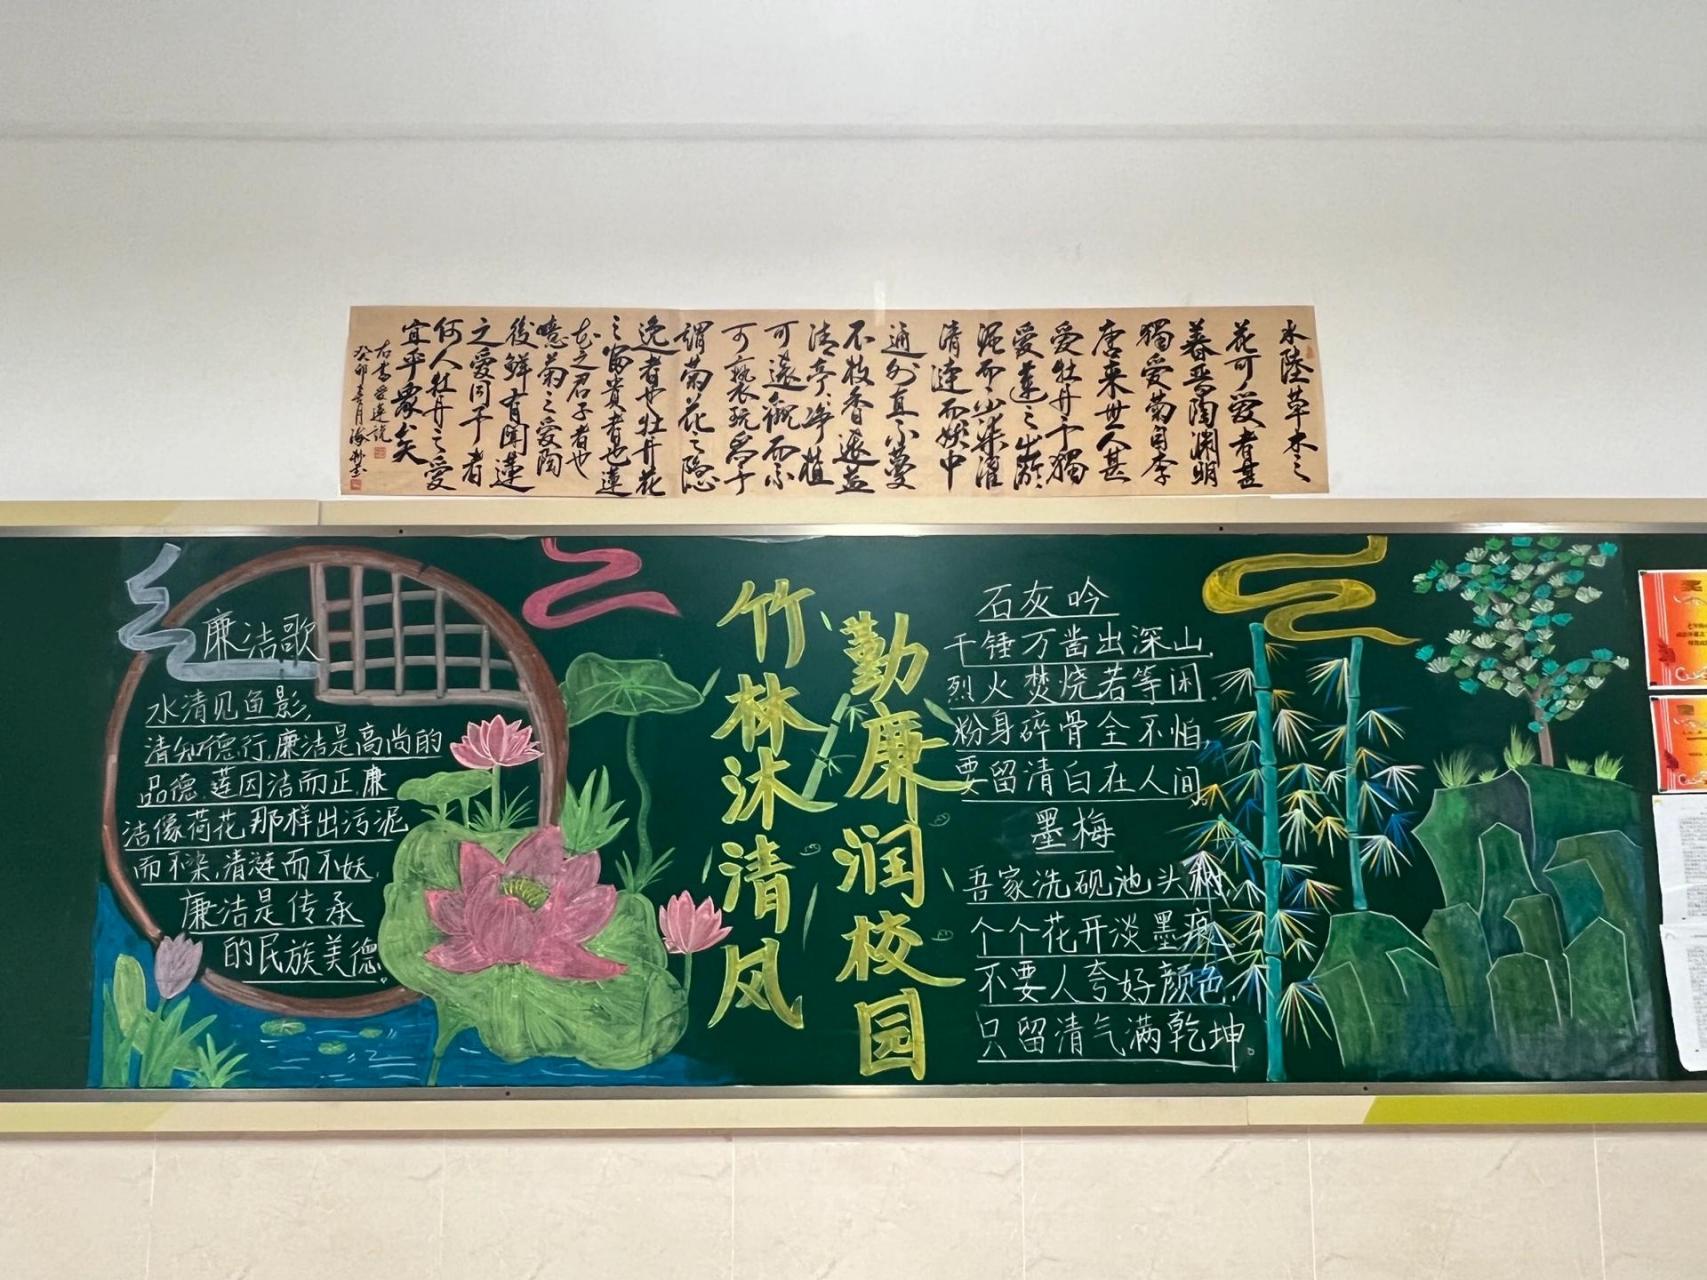 水陸草木之
花可爱者甚
蕃晋陶渊明
獨爱菊自李
唐来世人甚
爱牡丹予獨
爱蓮之出淤
泥而不染濯
清漣而妖中
通外直不蔓
不枝香遠益
清亭亭净植
可遠觀而不
可褻玩焉予
謂菊花之隐
逸者也牡丹花
之富貴者也蓮
花之君子者也
噫菊之爱陶
後鮮有聞蓮
之爱同予者
何人牡丹之爱
宜乎眾矣
右書爱蓮説
癸卯
廉洁歌
水清见鱼影,
清知德行,廉洁是高尚的
品德,莲因洁而正,廉
洁像荷花那样出污泥
而不染,清涟而不妖,
廉洁是传承
的民族美德。
竹林沐清风
勤廉润校园
石灰吟
千锤万凿出深山,
烈火焚烧若等闲.
粉身碎骨全不怕,
要留清白在人间。
墨梅
吾家洗砚池头树,
个个花开淡墨痕。
不要人夸好颜色,
只留清气满乾坤。